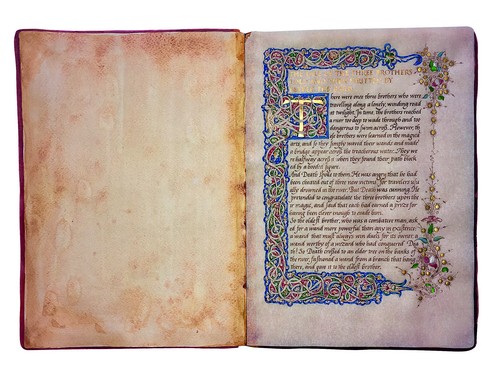 THREE BROTHERS
There were once three brothers who were
travelling along a lonely, winding road
at twilight. In time, the brothers reached
a river too deep to wade through and too
dangerous to swim across. However, th
brothers were learned in the magical
arts, and so they simply waved their wands and made
a bridge appear across the treacherous water. They were
halfway across it when they found their path block
ed by a hooded figure.
And Death spoke to them. He was angry that he had
been cheated out of three new victims, for travelers usu
ally drowned in the river. But Death was cunning. He
pretended to congratulate the three brothers upon the
ir magic, and said that each had earned a prize for
having been clever enough to evade him.
So the eldest brother, who was a combative man, ask
ed for a wand more powerful than any in existence:
a wand that must always win duels for its owner, a
wand worthy of a wizard who had conquered Dea
th! So Death crossed to an elder tree on the banks of
the river, fashioned a wand from a branch that hung
there, and gave it to the eldest brother.